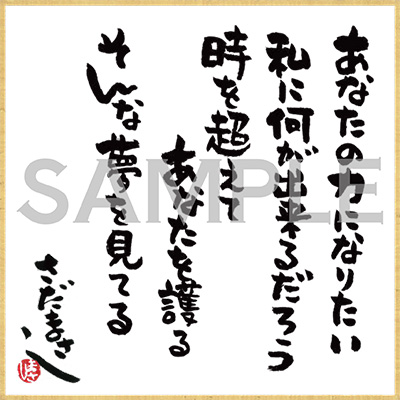 あなたの力になりたい
私に何が出来るだろう
時を超えて
あなたを護る
そんな夢を見てる
さだまさし
SAMPLE